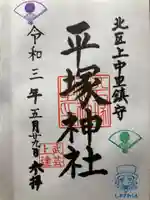 北区上中里鎮守
平塚神社
令和三年五月廿九日 奉拝